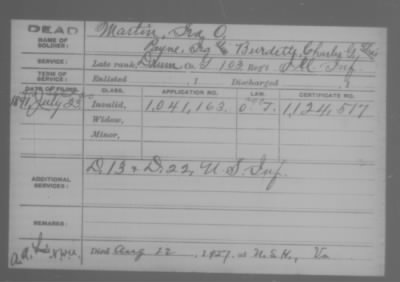 DEAD
NAME OF SOLDIER: Martin, Ira O.
Payne, Ira C. Burdett, Charles G.
SERVICE: Late rank, Drum Co. I 103 Reg't Ill. Inf.
TERM OF SERVICE: Enlisted , 1 Discharged , 1
DATE OF FILING. CLASS. APPLICATION NO. LAW. CERTIFICATE NO.
1891, July 23 Invalid, 1,041,163. 1,124,517
Widow,
Minor,
ADDITIONAL SERVICES: D. 13 & D. 22, U. S. Inf.
REMARKS:
Died Aug 12, 1927, at N.S.H., Va